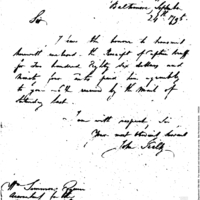 Baltimore, Septr
24th 1798.
Sir
I have the honour to transmit
herewith enclosed the Receipt of Captain
for Two hundred Eighty Six dollars and
Ninety four Cents paid him agreeably
to your received by the Mail of
Saturday last.
I am with respect Sir
Your most obedient Servant
John Kelty
Wm Simmons Esquire
Accountant